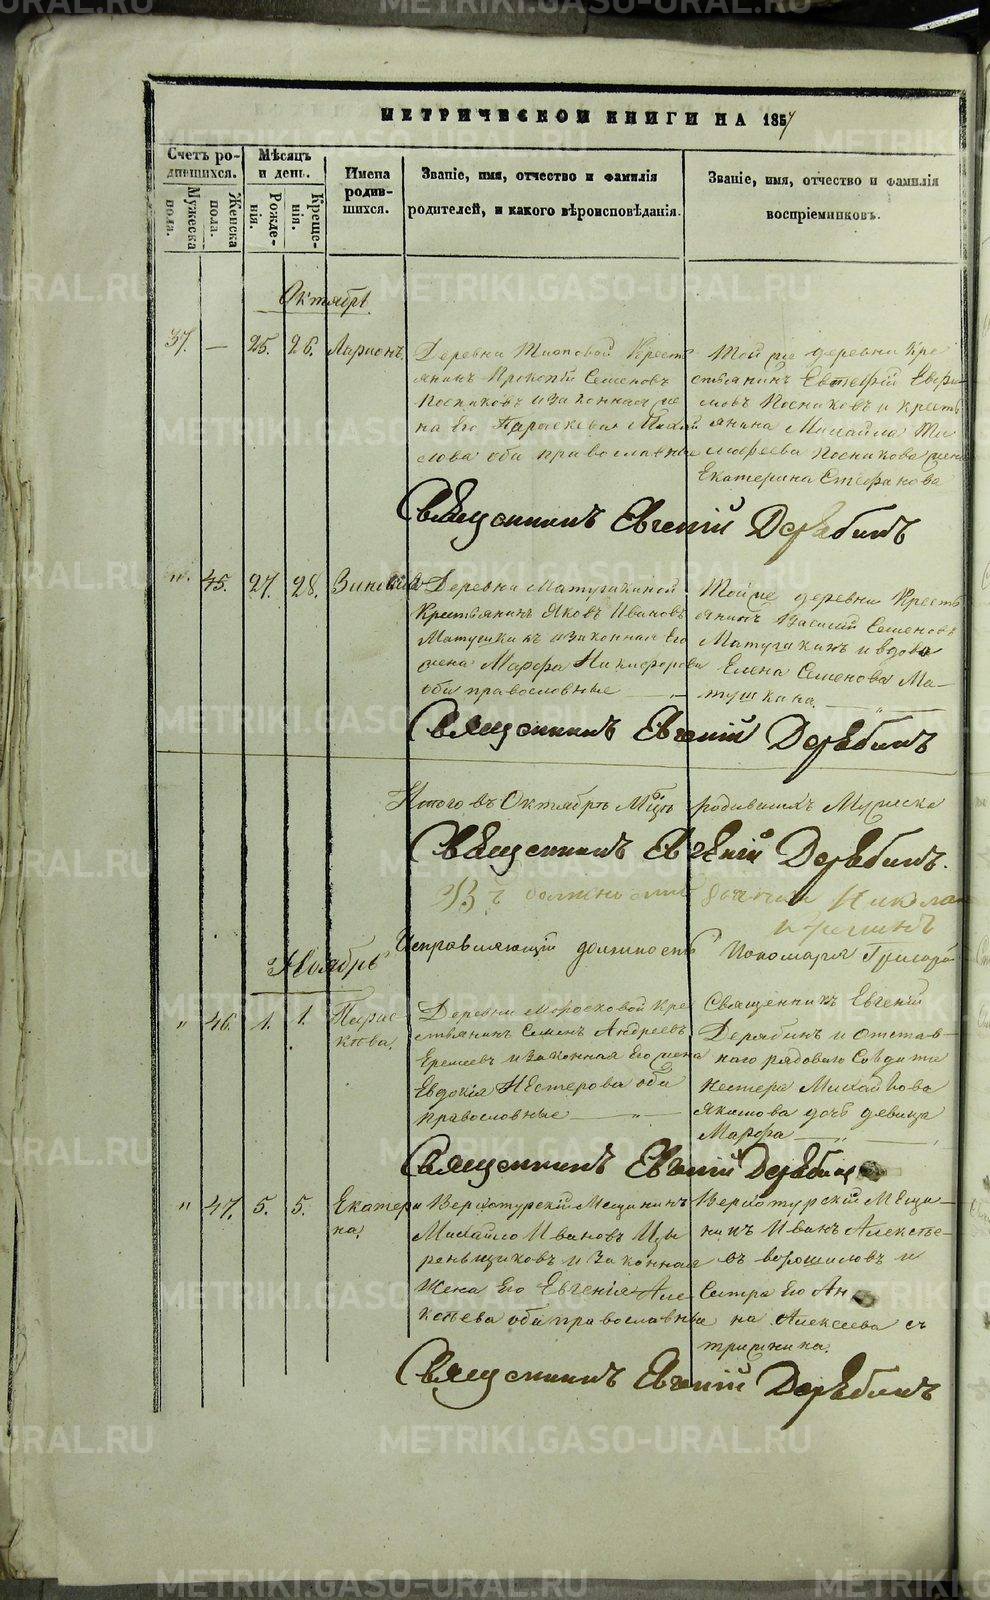 МЕТРИЧЕСКОЙ КНИГИ НА 1857
Счетъ ро-
дившихся.
Мужеска
пола.
Женска
пола.
Мѣсяцъ
и день.
Рожде-
нія.
Креще-
нія.
Имена
родив-
шихся.
Званіе, имя, отчество и фамилія
родителей, и какого вѣроисповѣданія.
Званіе, имя, отчество и фамилія
воспріемниковъ.
Октябрь
37. — 25. 26. Ларионъ.
Деревни Кресть
янинъ Прокопій Семеновъ
Посниковъ и законная же
на Его Параскевия Михай
лова оба православные
Той же деревни Кре
стьянинъ Евтефій Ефри
мовъ Посниковъ и кресть
янина Михайла Ти
мофеева Посникова жена
Екатерина Стефанова
Священникъ Евгеній Дерябинъ
". 45. 27. 28.
Деревни Матушкиной
Крестьянинъ Яковъ Ивановъ
Матушкинъ и законная Его
жена Марфа Никифорова
оба православные
Той же деревни Кресть
янинъ Василий Семеновъ
Матушкинъ и вдова
Елена Семенова Ма-
тушкина.
Священникъ Евгеній Дерябинъ
Итого въ Октябрѣ Мцѣ родившихъ Мужеска
Священникъ Евгеній Дерябинъ.
должности Никола
Исправляющій должность Пономаря Григорій
Ноябрь
" 46. 1. 1. Парас
кева.
Деревни Моросковой Кре
стьянинъ Семенъ Андреевъ
Еремеевъ и законная Его жена
Евдокія Нестерова оба
православные
Священникъ Евгеній
Дерябинъ и отстав-
наго рядоваго Солдата
Нестера Михайлова
Якимова дочь девица
Марфа
Священникъ Евгеній Дерябинъ
" 47. 5. 5. Екатери
на.
Верхотурскій Мещанинъ
Михайло Ивановъ Изы
ренщиковъ и Законная
Жена Его Евгенія Але
ксеева оба православные
Верхотурскій Меща-
нинъ Иванъ Алексее-
въ Ворошиловъ и
Сестра Его Ан
на Алексеева
Священникъ Евгеній Дерябинъ
METRIKI.GASO-URAL.RU